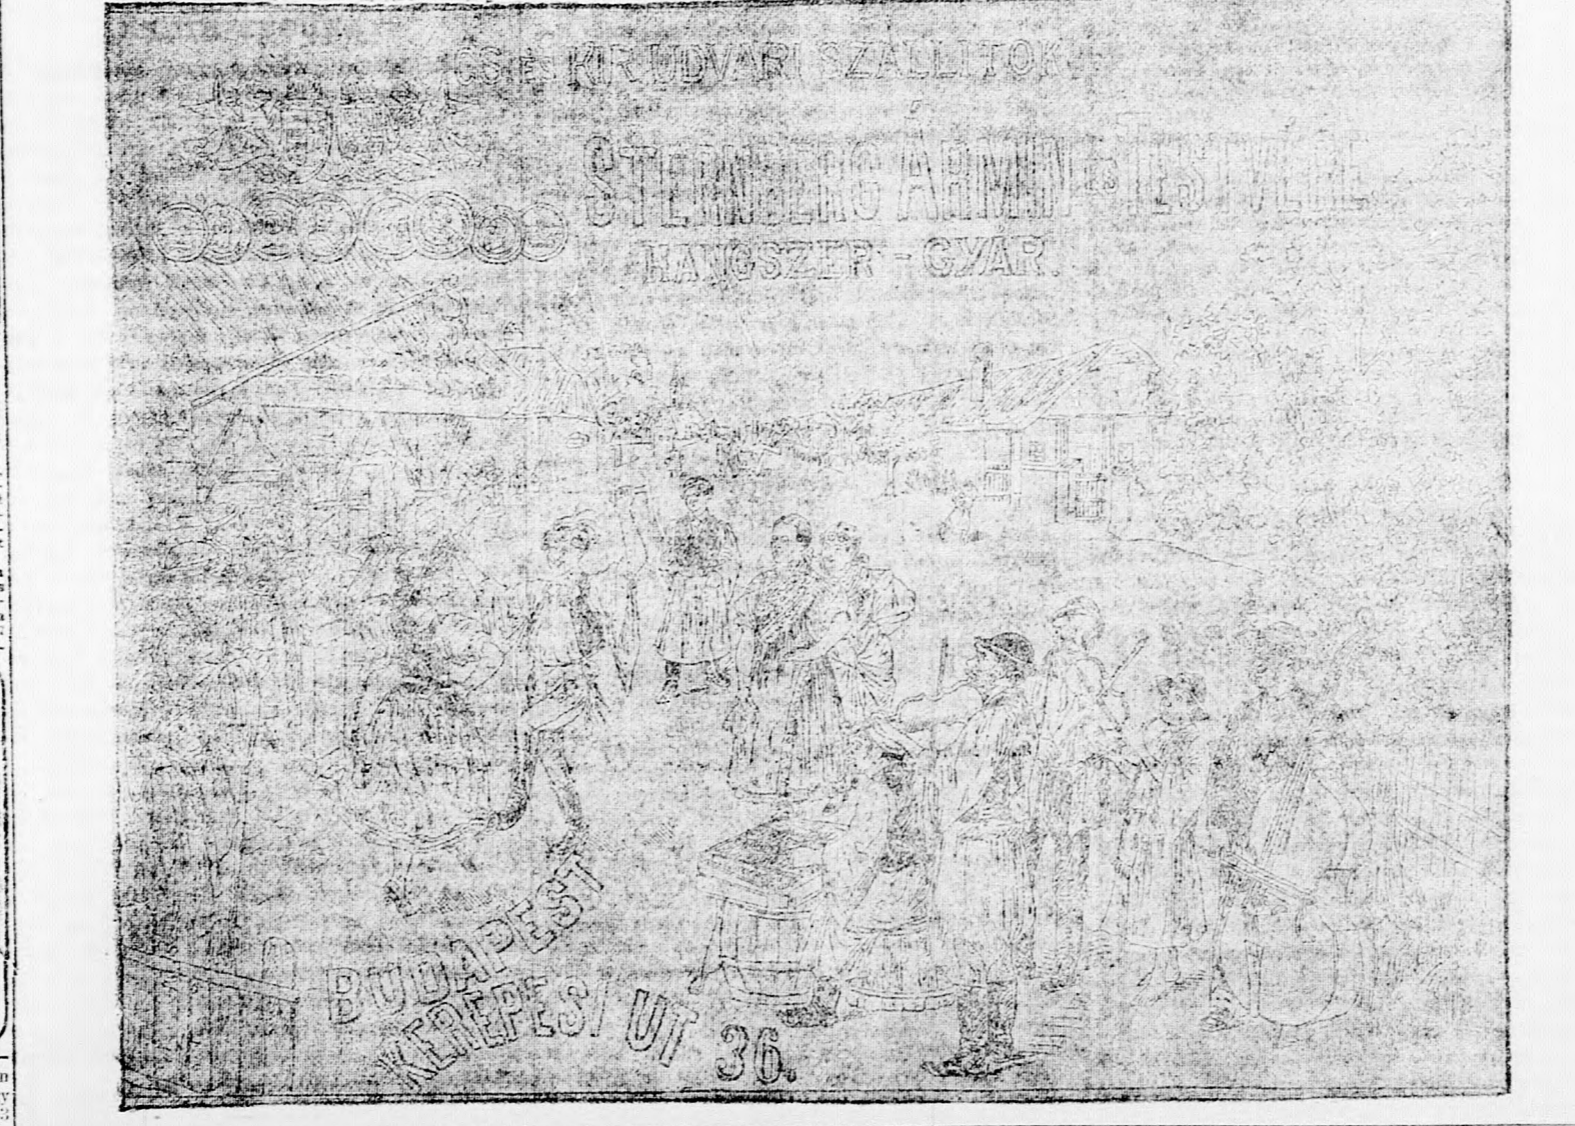 CS. ÉS KIR. UDVARI SZÁLLITOK.
STERNBERG ÁRMIN ÉS TESTVÉRE
HANGSZER-GYÁR.
BUDAPEST
KEREPESI UT 36.